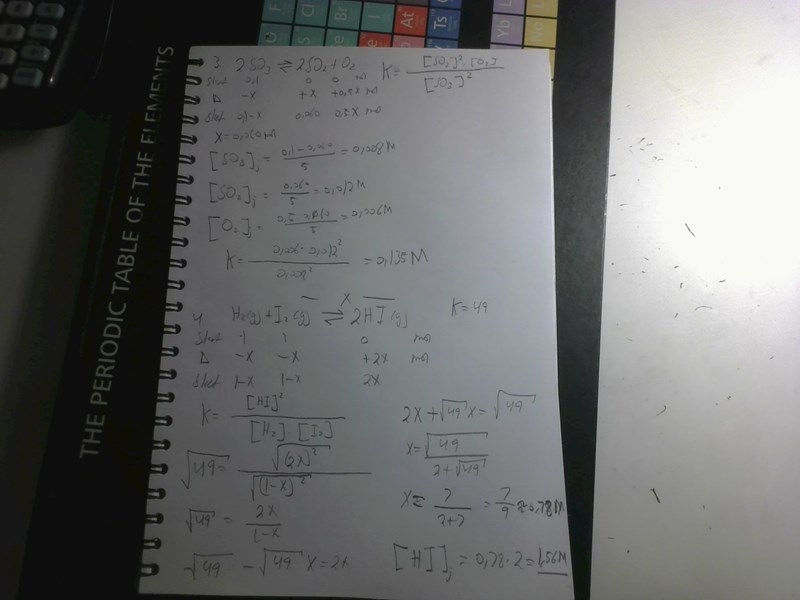 THE PERIODIC TABLE OF THE ELEMENTS
O F
S Cl
Br
I
At
Ts
Yb
3. 2SO₃ ⇌ 2SO₂ + O₂ K = [SO₂]²·[O₂] / [SO₃]²
Start 0,1 0 0 mol
Δ -X +X +0,5X mol
Slut 0,1-X 0,060 0,5X mol
X = 0,060 mol
[SO₃]ⱼ = 0,1-0,060 / 5 = 0,008 M
[SO₂]ⱼ = 0,060 / 5 = 0,012 M
[O₂]ⱼ = 0,5·0,060 / 5 = 0,006 M
K = 0,006·0,012² / 0,008² = 0,135 M
X
4. H₂(g) + I₂(g) ⇌ 2HI(g) K = 49
Start 1 1 0 mol
Δ -X -X +2X mol
Slut 1-X 1-X 2X
K = [HI]² / [H₂]·[I₂]
√49 = √(2X)² / √(1-X)²
√49 = 2X / 1-X
√49 - √49 X = 2X
2X + √49 X = √49
X = √49 / 2+√49
X = 7 / 2+7 = 7/9 ≈ 0,78 M
[HI]ⱼ = 0,78·2 = 1,56 M